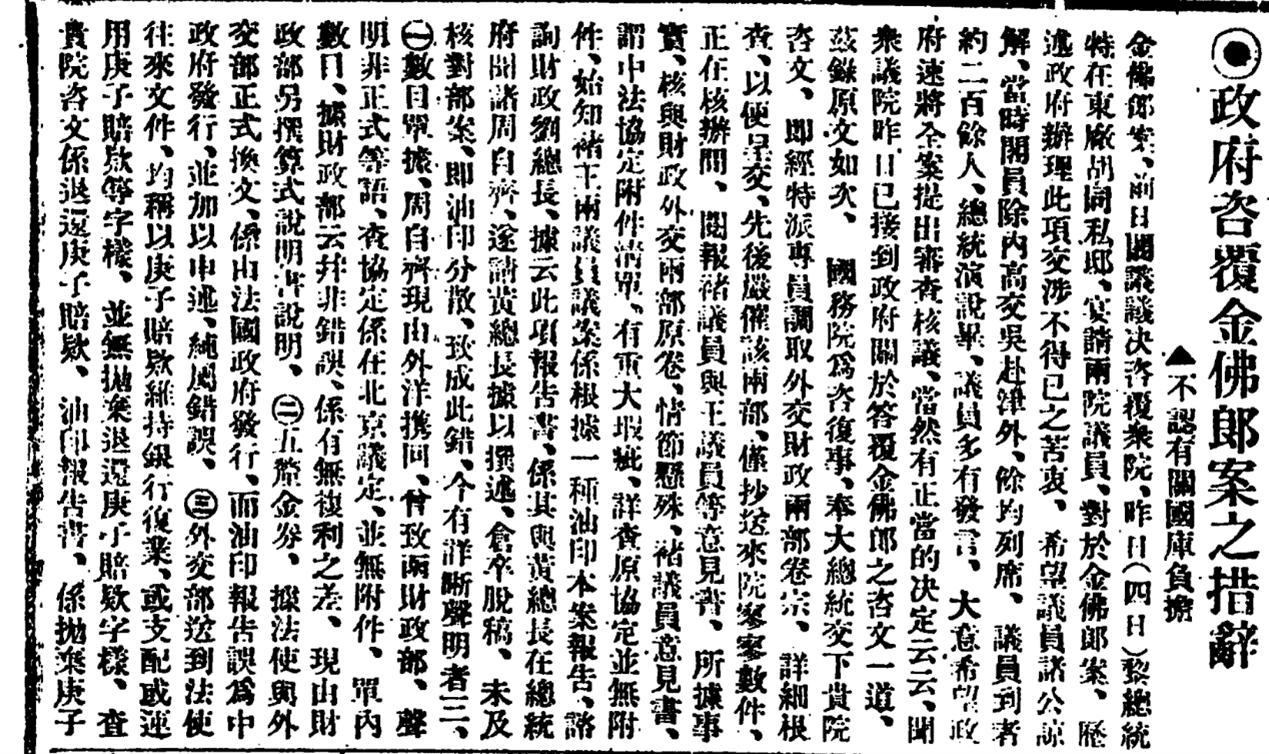 ◉政府咨覆金佛郎案之措辭
▲不認有關國庫負擔
金佛郎案、前日閣議議決咨覆衆院、昨日（四日）黎總統
特在東廠胡同私邸、宴請兩院議員、對於金佛郎案、歷
述政府辦理此項交涉不得已之苦衷、希望議員諸公諒
解、當時閣員除內高交吳赴津外、餘均列席、議員到者
約二百餘人、總統演說畢、議員多有發言、大意希望政
府速將全案提出審查核議、當然有正當的決定云云、聞
衆議院昨日已接到政府關於答覆金佛郎之咨文一道、
茲錄原文如次、國務院爲咨復事、奉大總統交下貴院
咨文、即經特派專員調取外交財政兩部卷宗、詳細根
查、以便呈交、先後嚴催該兩部、僅抄送來院寥寥數件、
正在核辦間、閱報褚議員與王議員等意見書、所據事
實、核與財政外交兩部原卷、情節懸殊、褚議員意見書、
謂中法協定附件清單、有重大瑕疵、詳查原協定並無附
件、始知褚王兩議員議案係根據一種油印本案報告、諮
詢財政劉總長、據云此項報告書、係其與黃總長在總統
府聞諸周自齊、遂請黃總長據以撰述、倉卒脫稿、未及
核對部案、即油印分散、致成此錯、今有詳晰聲明者三、
㊀數目單據、周自齊現由外洋携回、曾致函財政部、聲
明非正式等語、查協定係在北京議定、並無附件、單內
數目、據財政部云幷非錯誤、係有無複利之差、現由財
政部另撰算式說明書說明、㊁五釐金券、據法使與外
交部正式換文、係由法國政府發行、而油印報告誤爲中
政府發行、並加以申述、純屬錯誤、㊂外交部送到法使
往來文件、均稱以庚子賠欵維持銀行復業、或支配或運
用庚子賠欵等字樣、並無拋棄退還庚子賠欵字樣、查
貴院咨文係退還庚子賠欵、油印報告書、係拋棄庚子